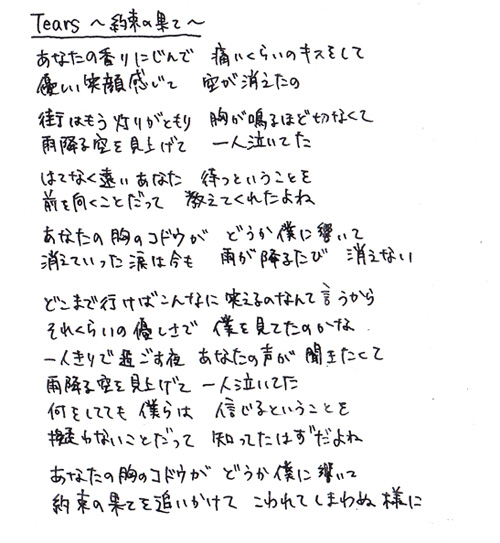 Tears ～約束の果て～
あなたの香りにじんで 痛いくらいのキスをして
優しい笑顔感じて 空が消えたの
街はもう灯りがともり 胸が鳴るほど切なくて
雨降る空を見上げて 一人泣いてた
はてなく遠いあなた 待つということを
前を向くことだって 教えてくれたよね
あなたの胸のコドウが どうか僕に響いて
消えていった涙は今も 雨が降るたび 消えない
どこまで行けばこんなに笑えるのなんて言うから
それくらいの優しさで 僕を見てたのかな
一人きりで過ごす夜 あなたの声が 聞きたくて
雨降る空を見上げて 一人泣いてた
何をしてても 僕らは 信じるということを
疑わないことだって 知ってたはずだよね
あなたの胸のコドウが どうか僕に響いて
約束の果てを追いかけて こわれてしまわぬ様に